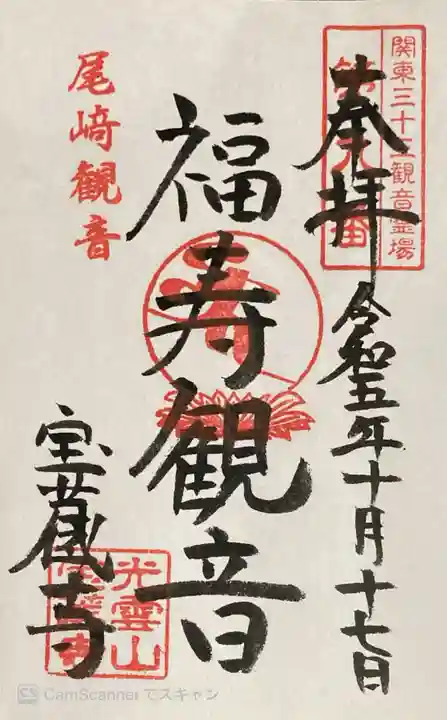 関東三十三観音霊場
奉拝
令和五年十月十七日
福寿観音
尾﨑観音
宝蔵寺
光雲山
宝蔵寺
CS CamScanner でスキャン